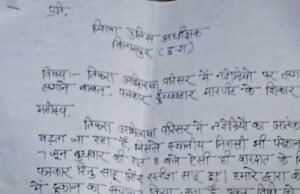 प्रति,
जिला पुलिस अधीक्षक
बिलासपुर (छ.ग)
विषय:- तिफरा अभिलाषा परिसर में नशेड़ियों पर लगा
लगाने बाबत, पत्रकार दुर्व्यवहार मारपीट के शिकार
महोदय,
तिफरा अभिलाषा परिसर में नशेड़ियों का आतंक
बढ़ता जा रहा है, जिससे स्थानीय निवासी भी परेशान
7 जून बुधवार की रात 8 बजे ऐसी ही वारदात के
पत्रकार साहू और सतीश साहू हा। हमारे द्वारा
में दुकान का